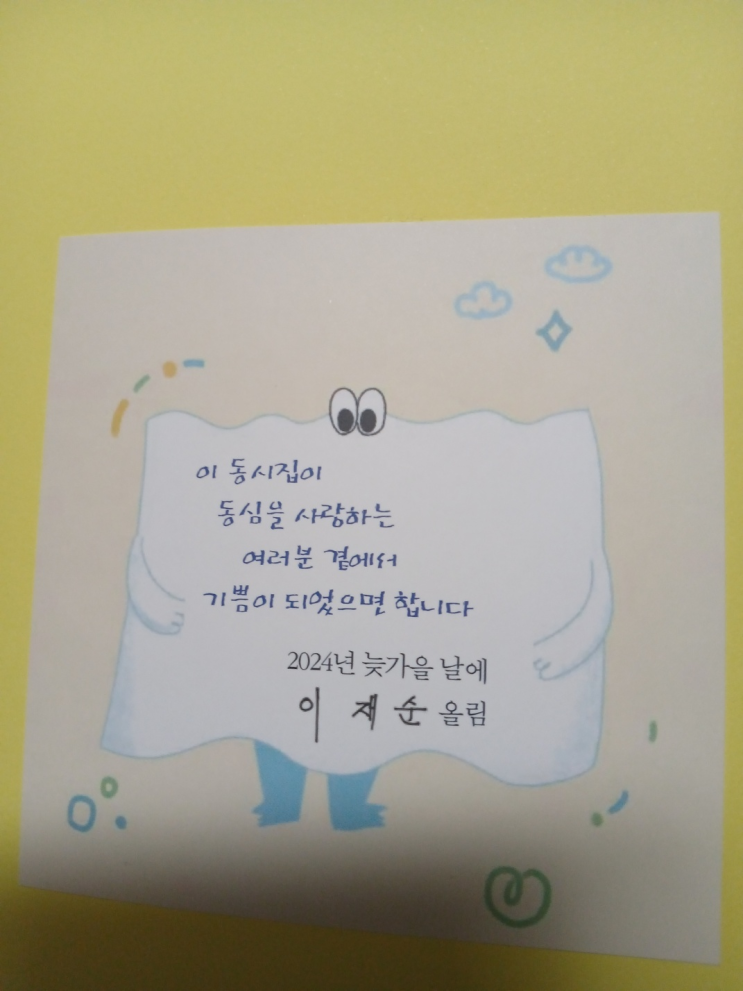 이 동시집이
동심을 사랑하는
여러분 곁에서
기쁨이 되었으면 합니다
2024년 늦가을 날에
이 재 순 올림